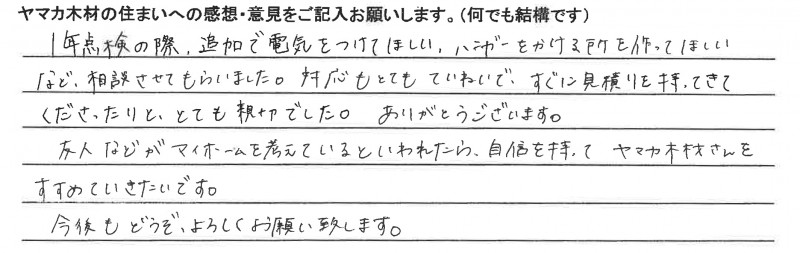 ヤマカ木材の住まいへの感想・意見をご記入お願いします。(何でも結構です)
1年点検の際、追加で電気をつけてほしい、ハンガーをかける所を作ってほしい
など、相談させてもらいました。対応もとてもていねいで、すぐに見積りを持ってきて
くださったりと、とても親切でした。ありがとうございます。
友人などがマイホームを考えているといわれたら、自信を持って ヤマカ木材さんを
すすめていきたいです。
今後もどうぞ、よろしくお願い致します。